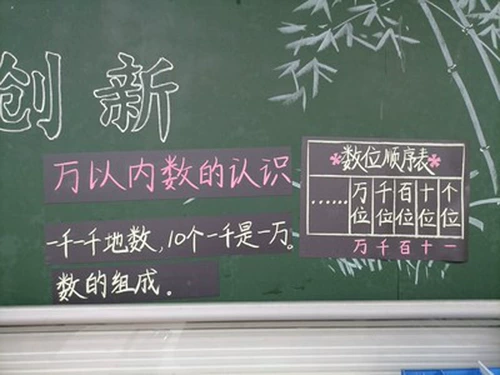 创新
万以内数的认识
一千一千地数,10个一千是一万。
数的组成.
*数位顺序表*
…… 万位 千位 百位 十位 个位
万 千 百 十 一